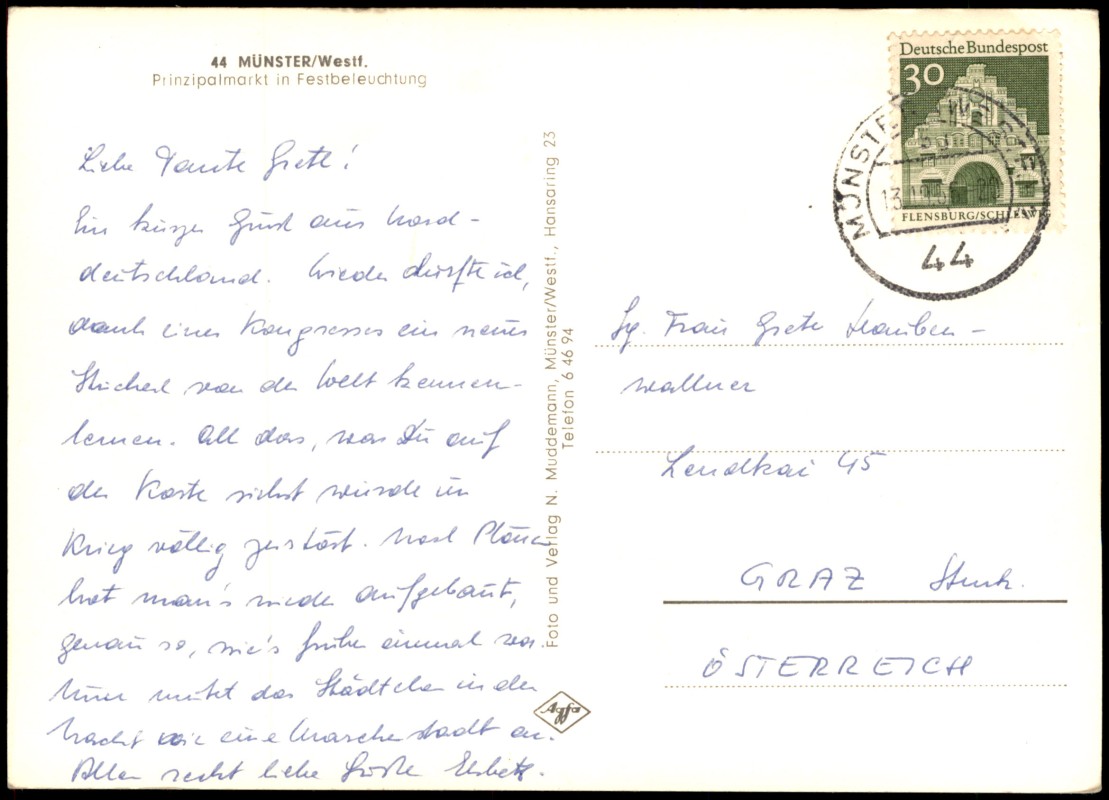 44 MÜNSTER/Westf.
Prinzipalmarkt in Festbeleuchtung
Liebe Tante Gretl!
Ein kurzer Gruß aus Nord-
deutschland. Wieder durfte ich,
dank eines Kongresses ein neues
Stückerl von der Welt kennen-
lernen. All das, was Du auf
der Karte siehst wurde im
Krieg völlig zerstört. Nach Plänen
hat man's wieder aufgebaut,
genau so, wie's früher einmal war.
Nun mutet das Städtchen in der
Nacht wie eine Märchenstadt an.
Allen recht liebe Grüße
Foto und Verlag N. Muddemann, Münster/Westf., Hansaring 23
Telefon 6 46 94
Agfa
Deutsche Bundespost
30
FLENSBURG/SCHLESW
MÜNSTER
44
Sg. Frau Grete
wallner
Lendkai 45
GRAZ Stmk.
ÖSTERREICH